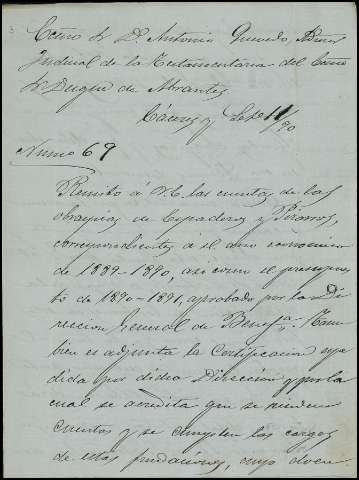 Excmo Sr Dn Antonio Quevedo, Admor
Judicial de la Testamentaria del Excmo
Sr Duque de Abrantes
Cáceres y Sete 11/90
Numo 69
Remito á V.E. las cuentas de las
obras pias de Espaderos y Pizarros,
correspondientes á el año economico
de 1889-1890, asi como el presupues
to de 1890-1891, aprobado por la Di
reccion General de Benefa. Tam
bien es adjunta la Certificacion espe
dida por dicha Direccion y por la
cual se acredita que se rinden
cuentas y se cumplen las cargas
de estas fundaciones, cuyo docu